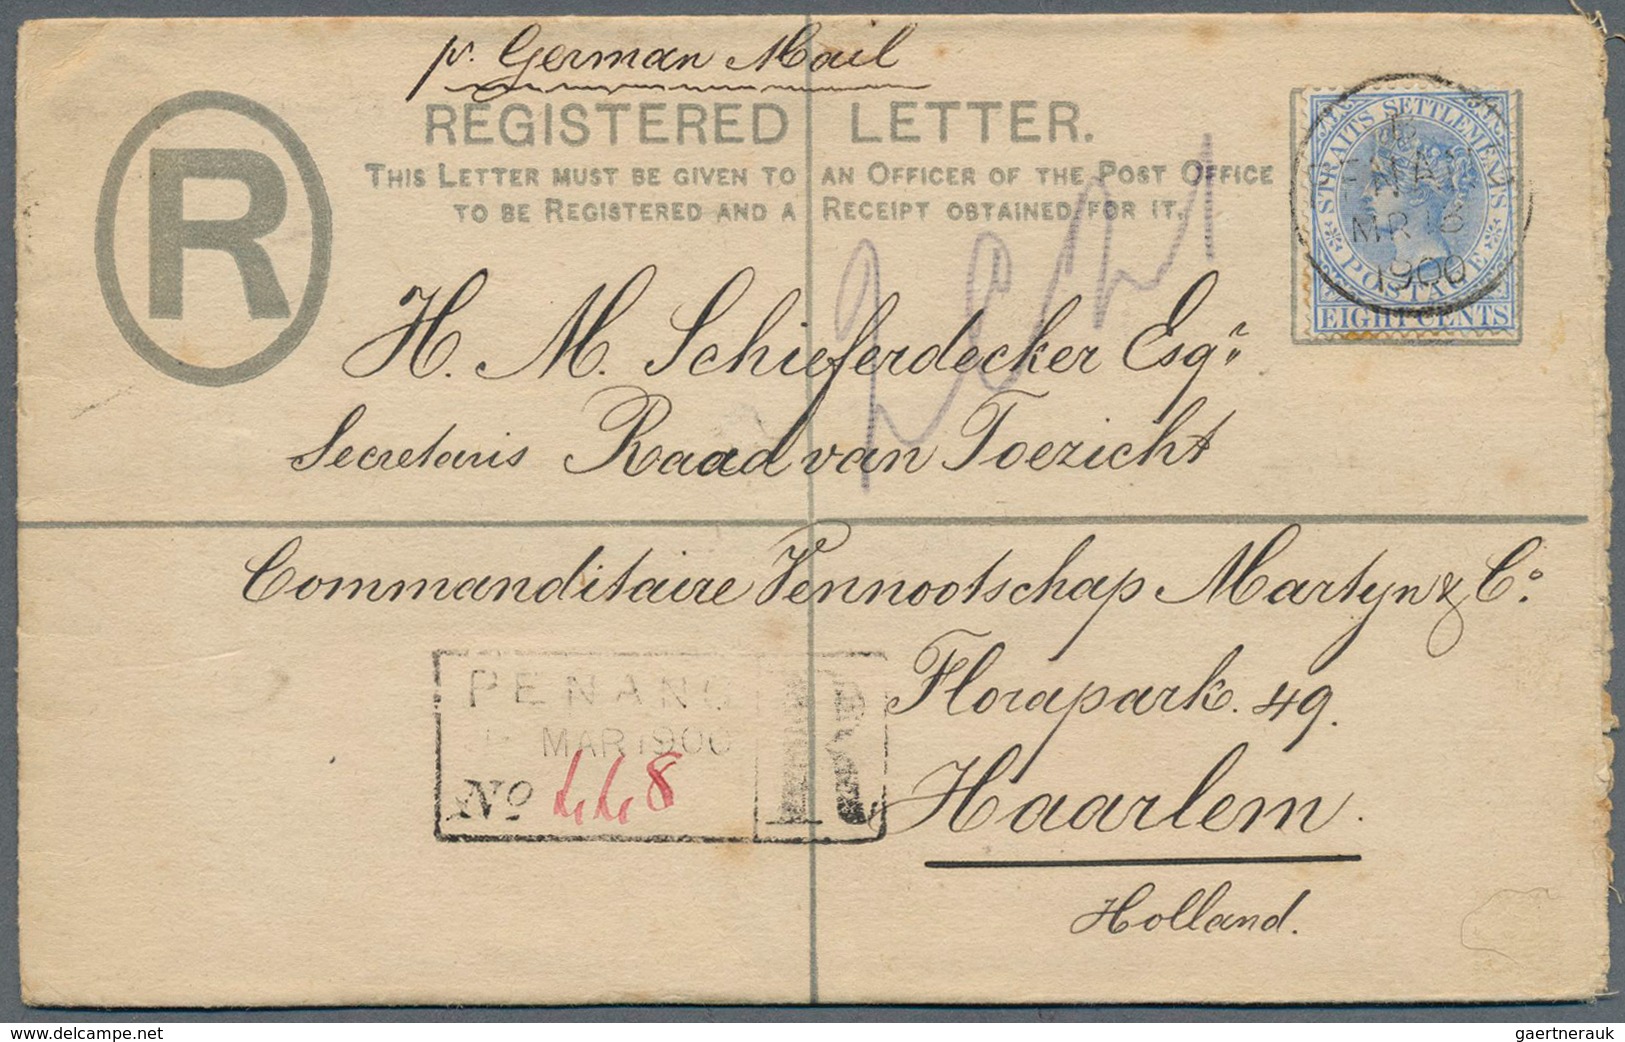 pr. German Mail
REGISTERED LETTER.
THIS LETTER MUST BE GIVEN TO AN OFFICER OF THE POST OFFICE
TO BE REGISTERED AND A RECEIPT OBTAINED FOR IT.
R
STRAITS SETTLEMENTS
POSTAGE
EIGHT CENTS
MR 16
1900
H. M. Schieferdecker Esqr.
Secretaris Raad van Toezicht
Commanditaire Vennootschap Martyn & Co.
Florapark. 49.
Haarlem.
Holland.
PENANG
MAR 1900
R
No 448
delcampe.net
gaertnerauk